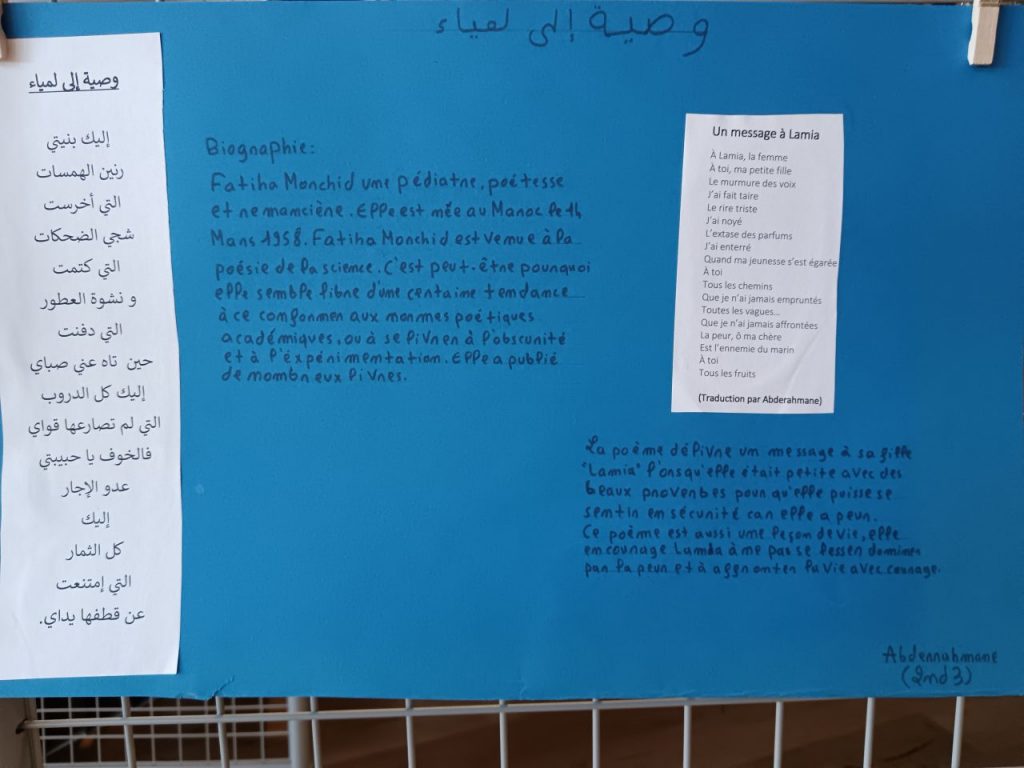 وصية إلى لمياء
وصية إلى لمياء
إليك بنيتي
رنين الهمسات
التي أخرست
شجي الضحكات
التي كتمت
و نشوة العطور
التي دفنت
حين تاه عني صباي
إليك كل الدروب
التي لم تصارعها قواي
فالخوف يا حبيبتي
عدو الإجار
إليك
كل الثمار
التي إمتنعت
عن قطفها يداي.
Biographie:
Fatiha Morchid une pédiatre, poétesse
et romancière. Elle est née au Maroc le 14
Mars 1958. Fatiha Morchid est venue à la
poésie de la science. C'est peut-être pourquoi
elle semble libre d'une certaine tendance
à ce conformer aux normes poétiques
académiques, ou à se livrer à l'obscurité
et à l'expérimentation. Elle a publié
de nombreux livres.
Un message à Lamia
À Lamia, la femme
À toi, ma petite fille
Le murmure des voix
J'ai fait taire
Le rire triste
J'ai noyé
L'extase des parfums
J'ai enterré
Quand ma jeunesse s'est égarée
À toi
Tous les chemins
Que je n'ai jamais empruntés
Toutes les vagues...
Que je n'ai jamais affrontées
La peur, ô ma chère
Est l'ennemie du marin
À toi
Tous les fruits
(Traduction par Abderahmane)
La poème délivre un message à sa fille
"Lamia" l'orsqu'elle était petite avec des
beaux proverbes pour qu'elle puisse se
sentir en sécurité car elle a peur.
Ce poème est aussi une leçon de vie, elle
encourage Lamia à ne pas se lesser dominer
par la peur et à affronter la vie avec courage.
Abderrahmane
(2nd 3)